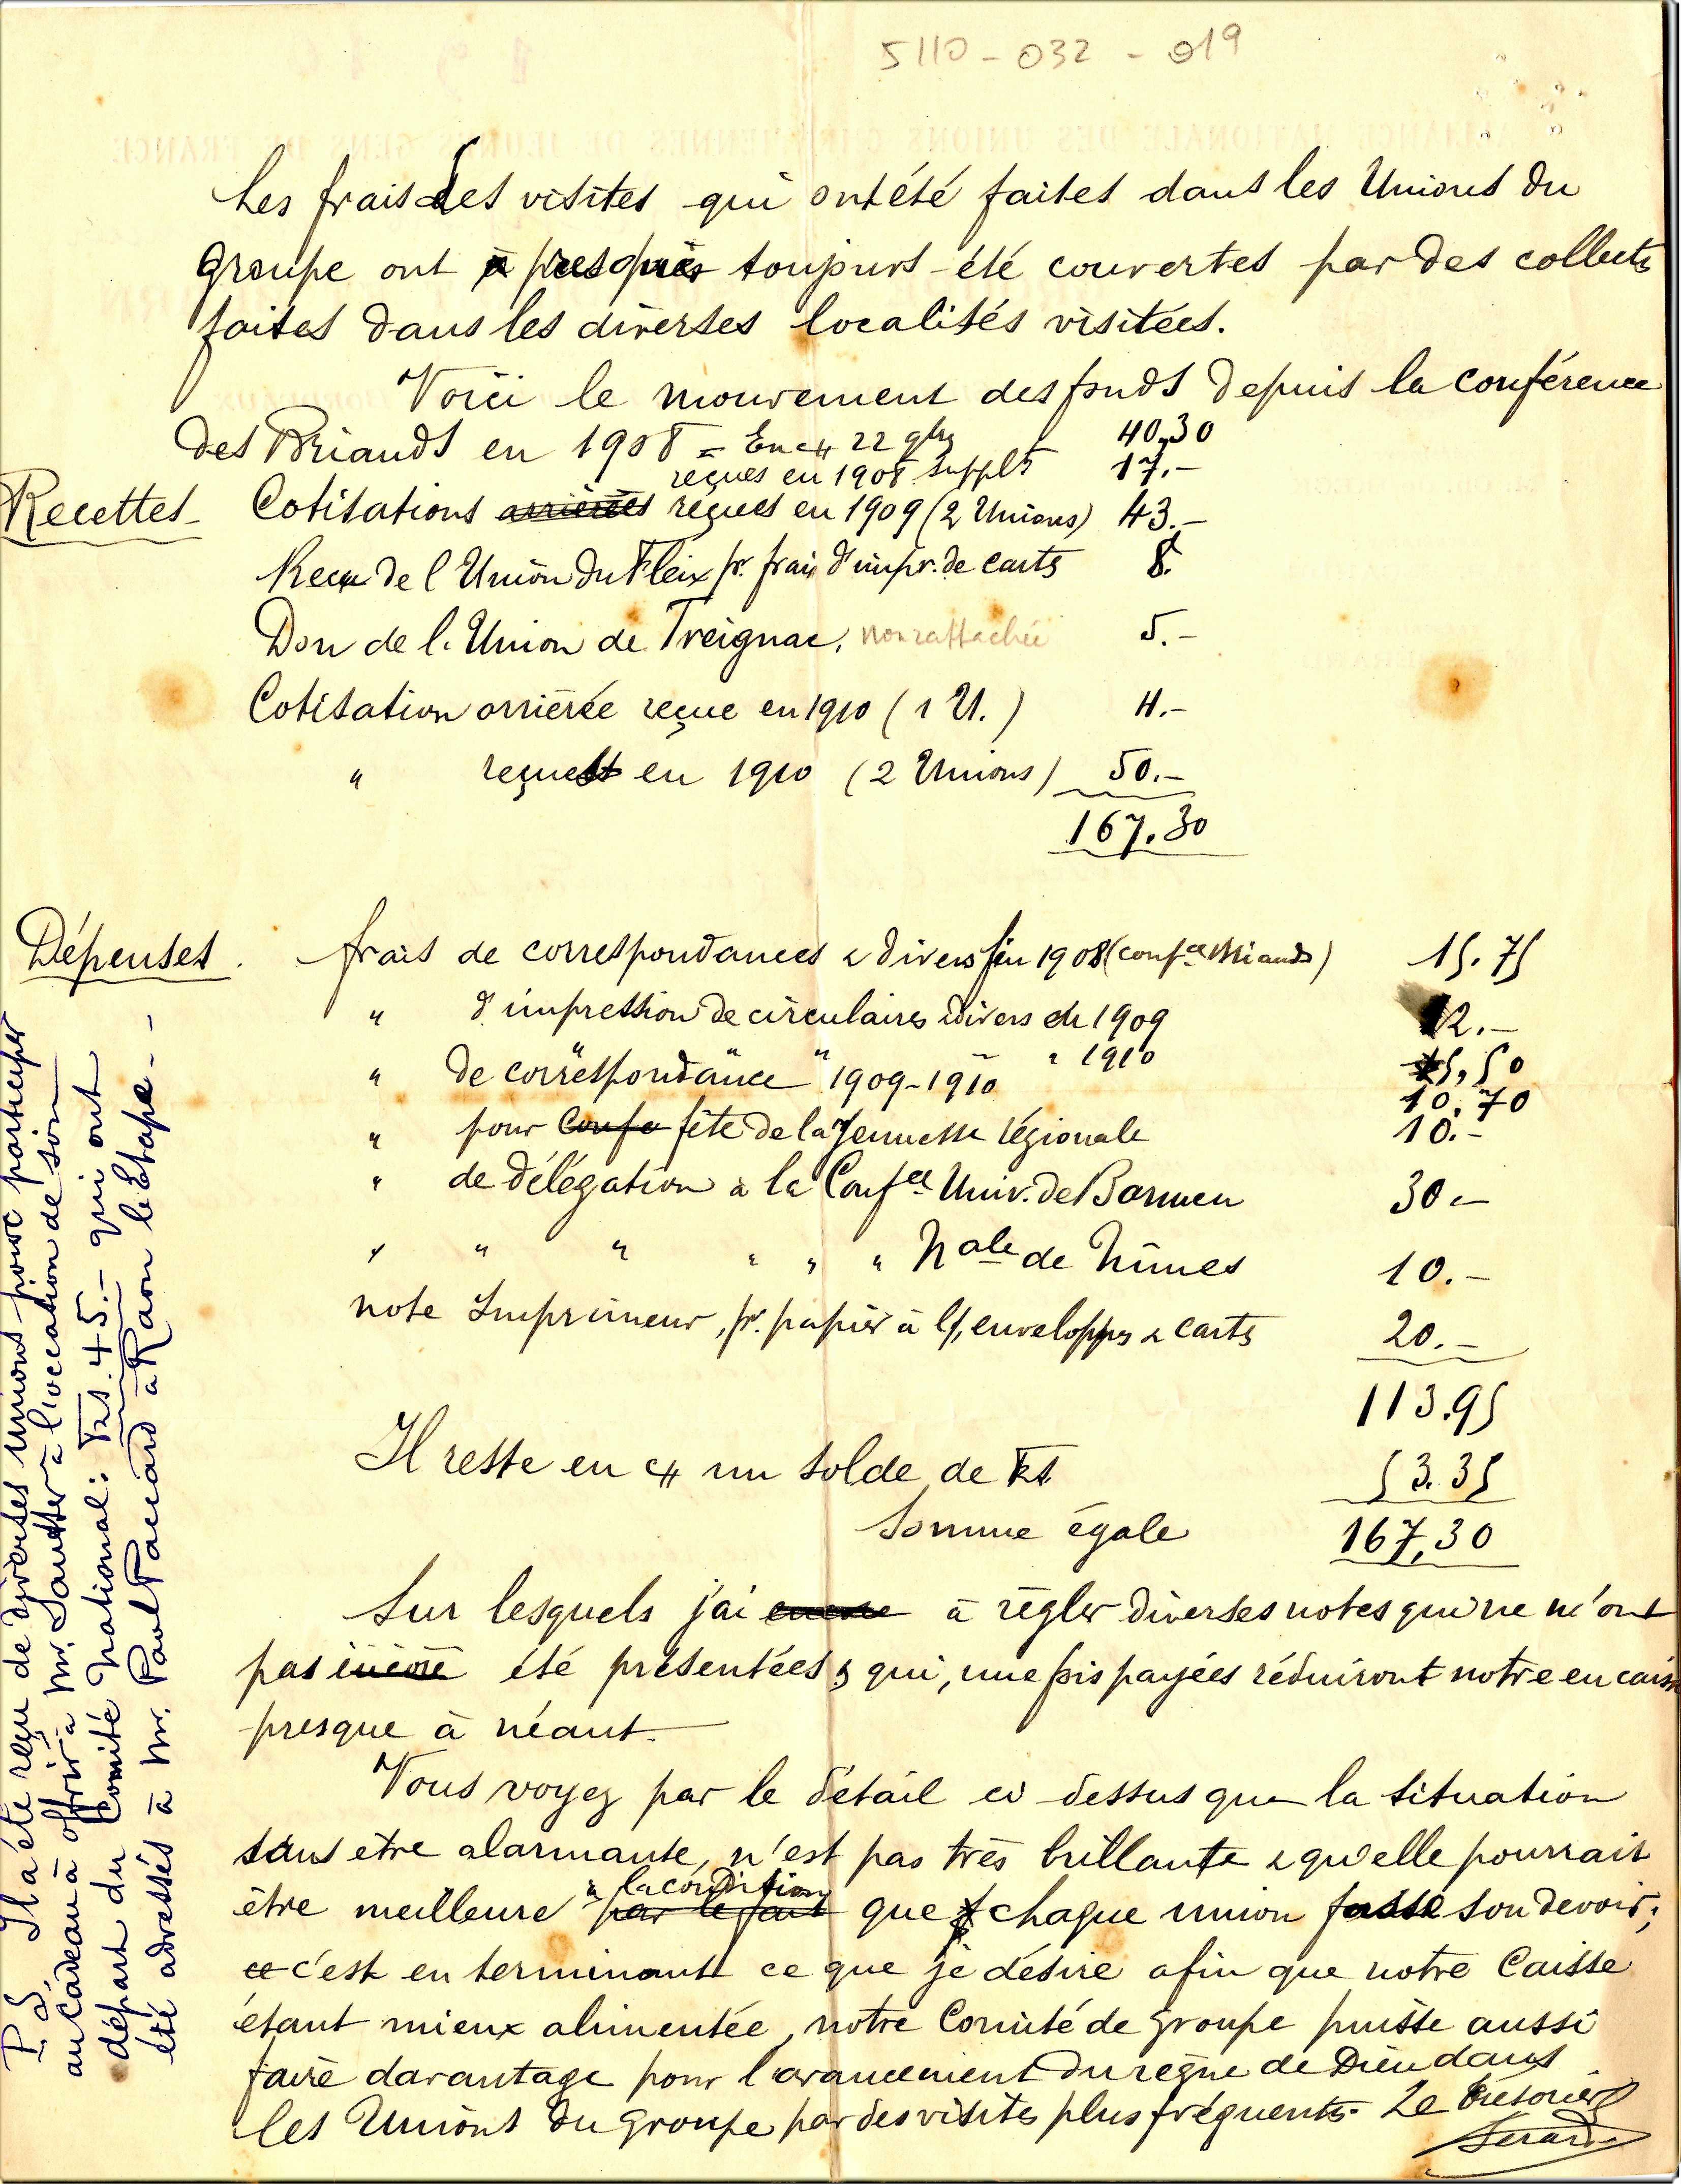 5110 - 032 - 019
Les frais des visites qui ont été faites dans les Unions du
groupe ont presque toujours été couvertes par des collects
faites dans les diverses localités visitées.
Voici le mouvement des fonds depuis la conférence
des Briands en 1908 = En c/ 22 9bre 40,30
reçues en 1908 supplt 17.-
Recettes - Cotisations arriérées reçues en 1909 (2 Unions) 43.-
Reçu de l'Union du Fleix pr. frais d'impr. de carts 8.
Don de l'Union de Treignac, non rattachée 5.-
Cotisation arriérée reçue en 1910 (1 U.) 4.-
" reçues en 1910 (2 Unions) 50.-
167.30
Dépenses. frais de correspondances & divers fin 1908 (confce Briands) 15.75
" d'impression de circulaires divers de 1909 2.-
" " " " 1910 5,50
" de correspondance 1909-1910 10.70
" pour Confe fête de la Jeunesse régionale 10.-
" de délégation à la Confce Univ. de Barmen 30.-
" " " " " " Nale de Nîmes 10.-
note Imprimeur, pr. papier à l/, enveloppes & carts 20.-
113.95
Il reste en c/ un solde de frs 53.35
Somme égale 167,30
Sur lesquels j'ai encore à régler diverses notes qui ne m'ont
pas encore été présentées & qui, une fois payées réduiront notre en caisse
presque à néant.
Vous voyez par le détail ci-dessus que la situation
sans être alarmante, n'est pas très brillante & qu'elle pourrait
à la condition
être meilleure par le fait que chaque union fasse son devoir;
c'est en terminant ce que je désire afin que notre Caisse
étant mieux alimentée, notre Comité de groupe puisse aussi
faire davantage pour l'avancement du règne de Dieu dans
les Unions du groupe par des visites plus fréquents. Le trésorier
P.S. Il a été reçu de diverses unions pour participer
au cadeau à offrir à Mr. Sautter à l'occcation de son
départ du Comité National: Frs. 45.- qui ont
été adressés à Mr. Paul Paccard à Raon le Etape -